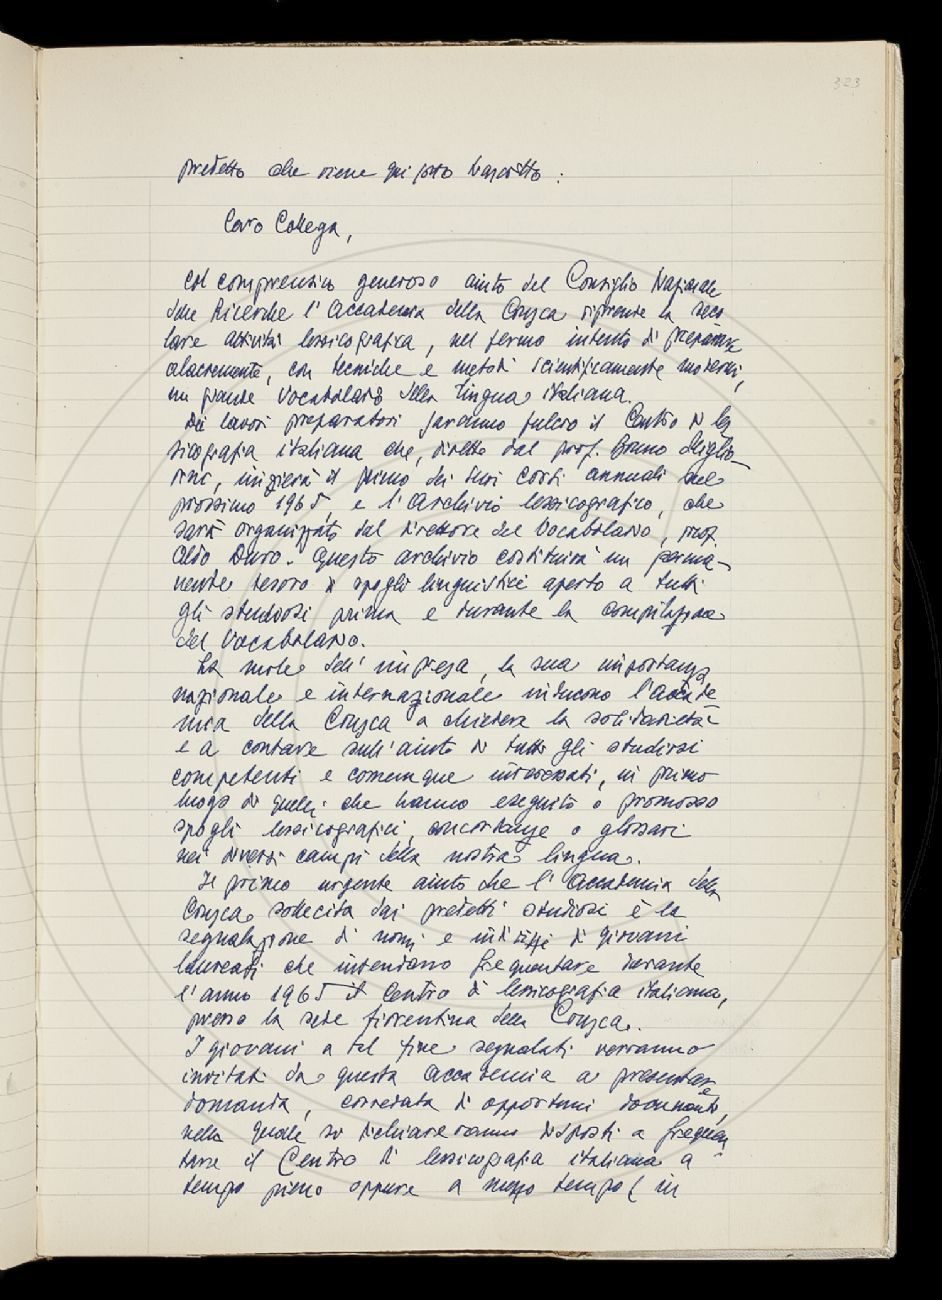 323
predetto che viene qui sotto trascritto :
Caro Collega,
col comprensivo generoso aiuto del Consiglio Nazionale
delle Ricerche l'Accademia della Crusca riprende la seco
lare attività lessicografica, nel fermo intento di preparare
alacremente, con tecniche e metodi scientificamente moderni,
un grande Vocabolario della lingua italiana.
Dei lavori preparatori saranno fulcro il Centro di les
sicografia italiana che, diretto dal prof. Bruno Miglio-
rini, inizierà il primo dei suoi corsi annuali nel
prossimo 1965, e l'Archivio lessicografico, che
sarà organizzato dal direttore del Vocabolario, prof.
Aldo Duro. Questo archivio costituirà un perma-
nente tesoro di spogli linguistici aperto a tutti
gli studiosi prima e durante la compilazione
del Vocabolario.
La mole dell'impresa, la sua importanza
nazionale e internazionale inducono l'Accade-
mia della Crusca a chiedere la solidarietà
e a contare sull'aiuto di tutti gli studiosi
competenti e comunque interessati, in primo
luogo di quelli che hanno eseguito o promosso
spogli lessicografici, concordanze o glossari
nei diversi campi della nostra lingua.
Il primo urgente aiuto che l'Accademia della
Crusca sollecita dai predetti studiosi è la
segnalazione di nomi e indirizzi di giovani
laureati che intendano frequentare durante
l'anno 1965 il Centro di lessicografia italiana,
presso la sede fiorentina della Crusca.
I giovani a tal fine segnalati verranno
invitati da questa Accademia a presentare
domanda, corredata di opportuni documenti,
nella quale si dichiareranno disposti a frequen
tare il Centro di lessicografia italiana a
tempo pieno oppure a mezzo tempo (in